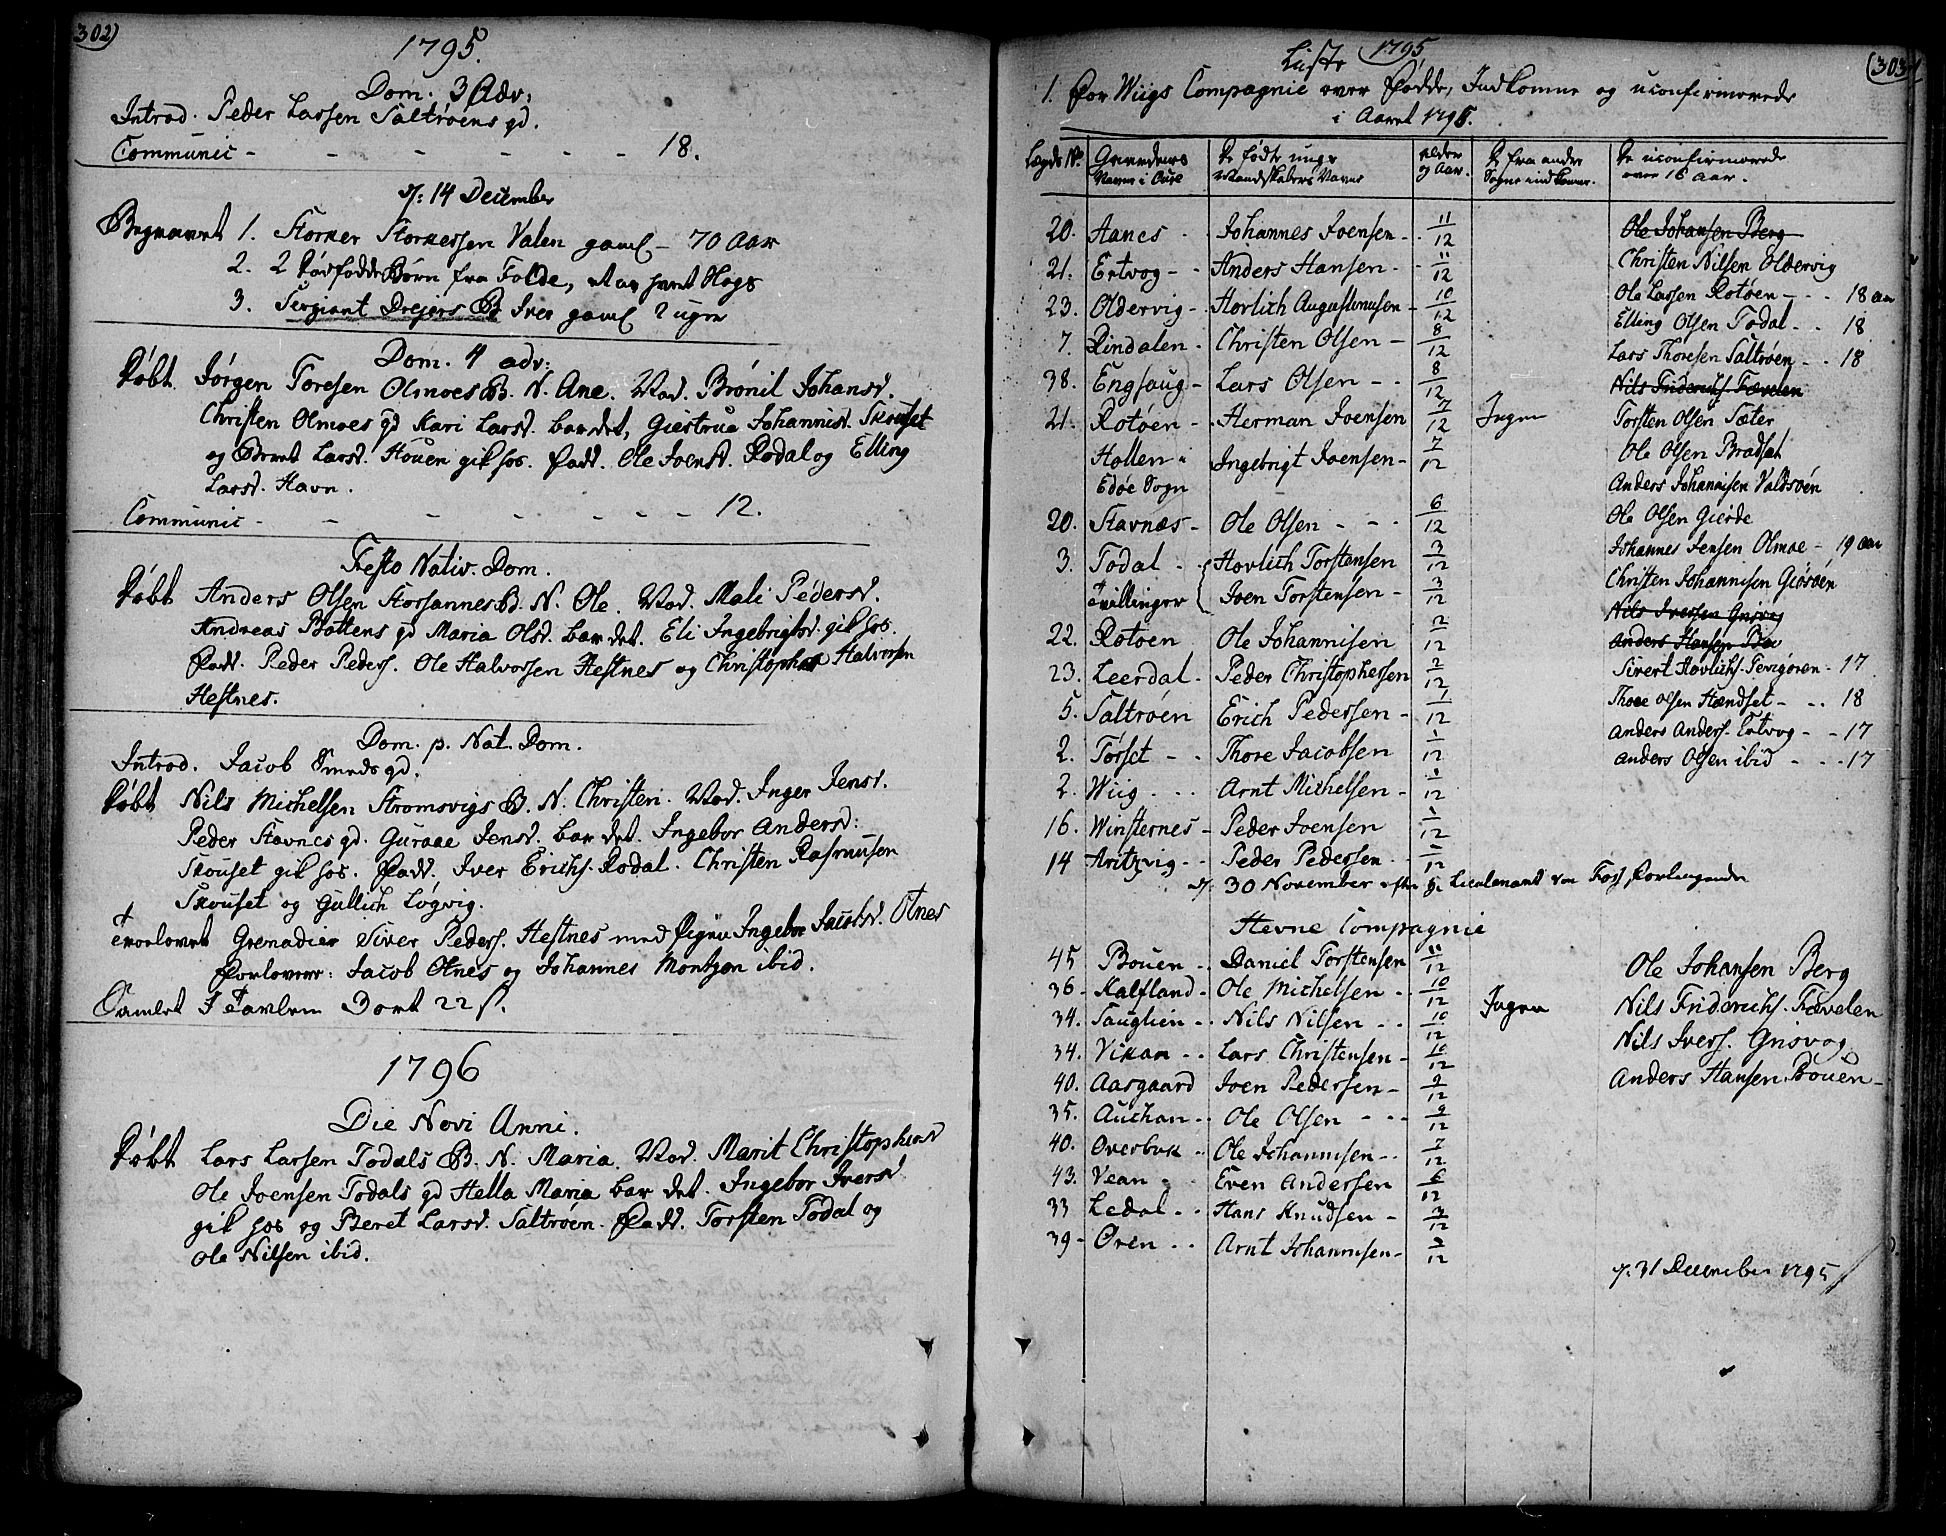 302)
1795.
Dom. 3 Adv:
Introd. Peder Larsen Saltrøens qd.
Communic - - - - - - - 18.
d: 14 December
Begravet 1. Storker Storkersen Valen gaml - 70 Aar
2. 2 Dødfødde Børn fra Folde,
3. Sergiant Drejers B Iver gaml 2 uger
Dom. 4 adv:
Døbt Jørgen Toresen Olmoes B. N. Ane. Vod. Brönil Johansd.
Christen Olmoes qd Kari Larsd. bar det, Giestrua Johannisd. Skouset
og Beret Larsd. Houen gik hos. Fadd. Ole Joensd. Rodal og Elling
Larsd. Havn.
Communic - - - - - - - 12.
Festo Nativ. Dom.
Døbt Anders Olsen Korsannes B. N. Ole. Vod. Mali Pedersd.
Andreas Bottens qd Maria Olsd. bar det. Eli Ingebrigtsd. gik hos.
Fadd. Peder Peders. Ole Halvorsen Hestnes og Christopher Halvorsen
Hestnes.
Dom. p. Nat. Dom.
Introd. Jacob Smeds qd.
Døbt Nils Michelsen Stromsvigs B. N. Christen. Vod. Inger Jensd.
Peder Stavnes qd. Guraae Jensd. bar det. Ingebor Andersd:
Skouset gik hos. Fadd. Iver Erichs. Rodal. Christen Rasmusen
Skouset og Gullich Løgvig.
Trorlovet Grenadier Siver Peders. Hestnes med Pigen Ingebor Jacobsd. Otnes
Forlovere: Jacob Otnes og Johannes Montzen ibid.
Samlet I Tavlen 3 ort 22 s.
1796
Die Novi Anni.
Døbt Lars Larsen Todals B. N. Maria. Vod. Marit Christophersd
Ole Joensen Todals qd Hella Maria bar det. Ingebor Iversd.
gik hos og Beret Larsd. Saltrøen. Fadd. Torsten Todal og
Ole Nilsen ibid.
Liste 1795 (303
1. For Wiigs Compagnie over Fødde, Indkomne og uconfirmerede
i Aaret 1795.
Lægds No. Gaardens Navn i Aure De fødte unge Mandskabers Navne Alder og Aar. De fra andre Sogne indkomne. De uconfirmerede over 16 Aar.
20. Aanes - Johannes Joensen - 11/12 Ole Johansen Berg
21. Ertvog - Anders Hansen - 11/12 Christen Nilsen Oldervig
23. Oldervig - Hovlich Augustinusen - 10/12 Ole Larsen Rotøen - - 18 aar
7. Rindalen - Christen Olsen - 8/12 Elling Olsen Todal - - 18
38. Engsaug - Lars Olsen - - 8/12 Lars Thoresen Saltrøen - - 18
Nils Friderichs. Fævelen
21. Rotøen - Herman Joensen 7/12 Ingen Torsten Olsen Sæter
Hollen i Ingebrigt Joensen - 7/12 Ole Olsen Bradset
Edøe Sogn Anders Johannisen Valdsøen
20. Stavnæs - Ole Olsen - - - 6/12 Ole Olsen Gierde
3. Todal - - Hovlich Torstensen 3/12 Johannes Jensen Olmoe - 19 aar
Tvillinger Joen Torstensen - 3/12 Christen Johannisen Giøsøen
Nils Iversen Grisvog
22. Rotøen Ole Johannisen 2/12 Anders Hansen Boe
23. Leerdal - Peder Christophersen 2/12 Sivert Hovlichs. - 17
5. Saltrøen Erich Pedersen - 1/12 Thore Olsen Stændset - - 18
2. Torset - - Thore Jacobsen 1/12 Anders Anders. Ertvog - - 17
2. Wiig - - - Arnt Michelsen - 1/12 Anders Olsen ibid - - - 17
16. Winsternes - Peder Joensen 1/12
14 Aritzvig - - Peder Pedersen - - 1/12
d: 30 November efter Hr Lieutenant von Foss Forlangende
Hevne Compagnie
45 Bouen - - Daniel Torstensen 11/12 Ole Johansen Berg
36 - Kalfland - Ole Michelsen - - 10/12 Ingen Nils Friderichs. Fævelen
34. Sauglien - - Nils Nilsen - - 10/12 Nils Ivers. Grisvog
34. Vikan - - Lars Christensen - 10/12 Anders Hansen Bouen -
40. Aasgaard Joen Pedersen - 9/12
35. Auchan - - Ole Olsen - - - 9/12
40. Overbuk - - Ole Johannisen - - 7/12
43. Vean - - Even Andersen 6/12
33 Ledal - - Hans Knudsen - 3/12
39 - Øren - - Arnt Johannisen - 3/12
d: 31 December 1795